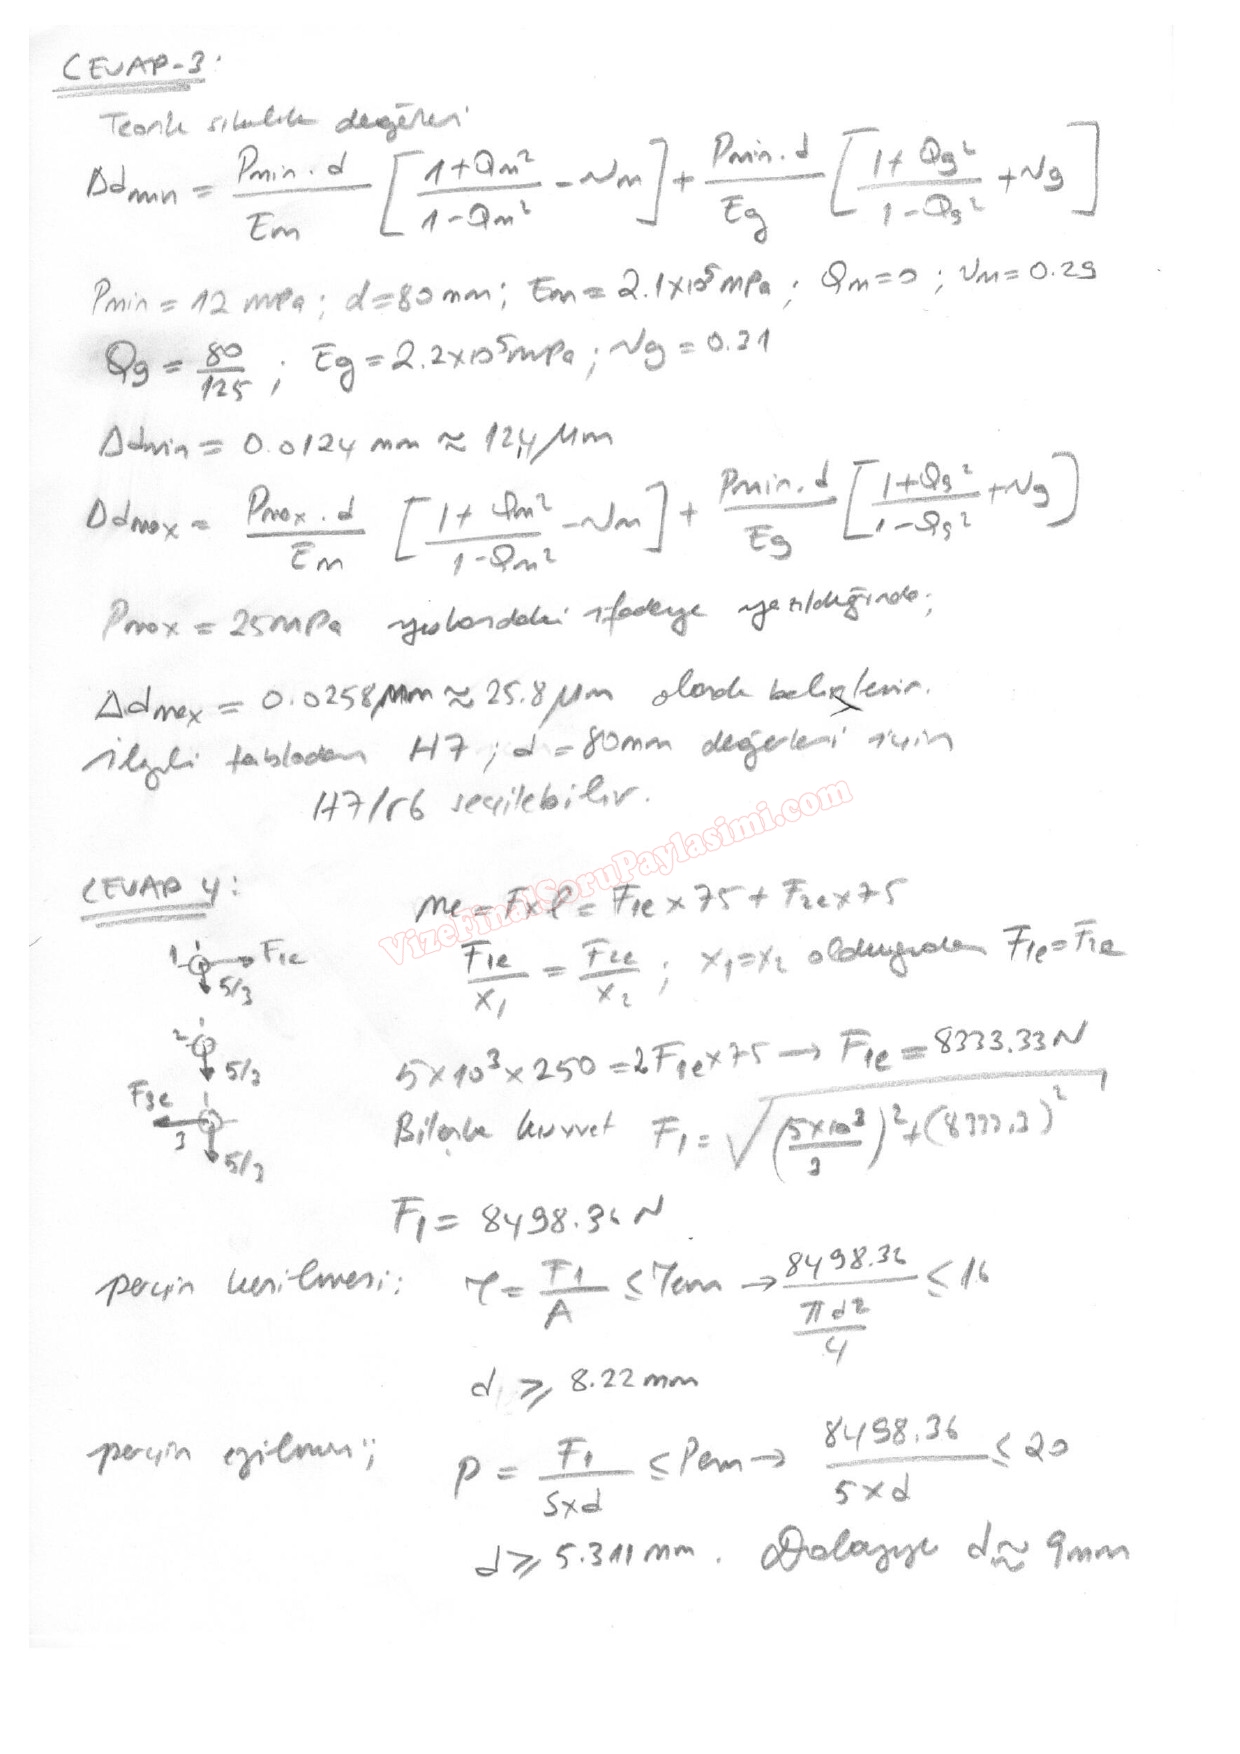 CEVAP-3:
Teorik sıkılık değerleri
Δdmin = Pmin.d / Em [ (1+Qm²)/(1-Qm²) - νm ] + Pmin.d / Eg [ (1+Qg²)/(1-Qg²) + νg ]
Pmin = 12 mPa ; d=80mm ; Em=2.1x10⁵mPa ; Qm=0 ; νm=0.29
Qg = 80/125 ; Eg=2.2x10⁵mPa ; νg=0.31
Δdmin = 0.0124 mm ≈ 12,4 μm
Δdmax = Pmax.d / Em [ (1+Qm²)/(1-Qm²) - νm ] + Pmin.d / Eg [ (1+Qg²)/(1-Qg²) + νg ]
Pmax = 25mPa yukarıdaki ifadeye yazıldığında;
Δdmax = 0.0258μm ≈ 25.8 μm olarak belirlenir.
ilgili tablodan H7 ; d=80mm değerleri için
H7/r6 seçilebilir.
VizeFinalSoruPaylasimi.com
CEVAP 4:
Me = Fxl = F1e x 75 + F2e x 75
1 F1e 5/3
F1e/x1 = F2e/x2 ; x1=x2 olduğundan F1e=F2e
2 5/3
5x10³x250 = 2F1e x 75 → F1e = 8333.33N
F3e 3 5/3
Bileşke kuvvet F1 = √((5x10³/3)² + (8333.3)²)
F1 = 8498.36 N
perçin kesilmesi; τ = F1/A ≤ τem → 8498.36 / (πd²/4) ≤ 16
d ≥ 8.22mm
perçin ezilmesi; P = F1 / 5xd ≤ Pem → 8498.36 / 5xd ≤ 20
d ≥ 5.311mm . Dolayısıyla d ≈ 9mm